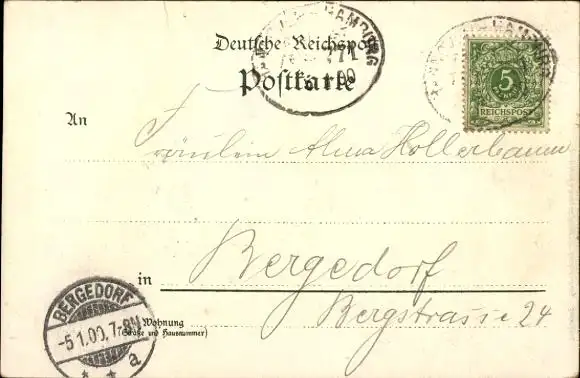 Deutsche Reichspost
HAMBURG
771
Postkarte
5
REICHSPOST
An
Fräulein Alma Hollerbaum
in Bergedorf
Bergstrasse 24
Wohnung
(Straße und Hausnummer)
BERGEDORF
-5.1.00.7-8V
* * a